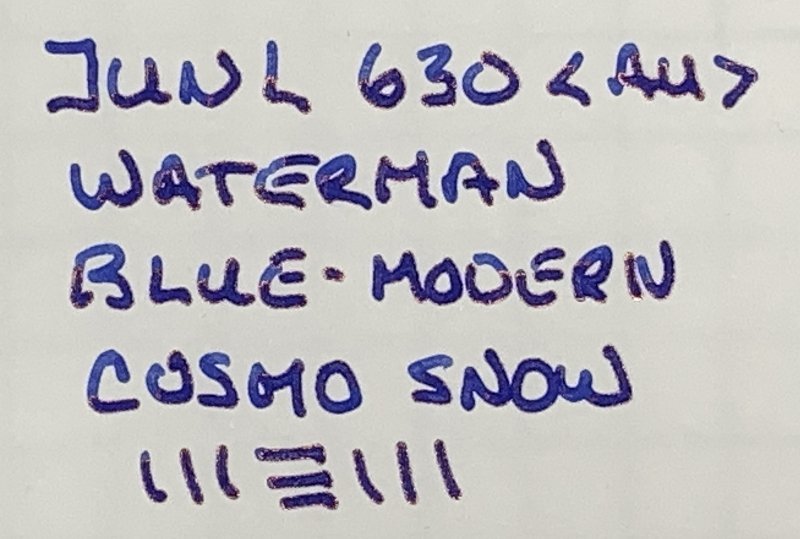 JUNL 630 <AU>
WATERMAN
BLUE-MODERN
COSMO SNOW